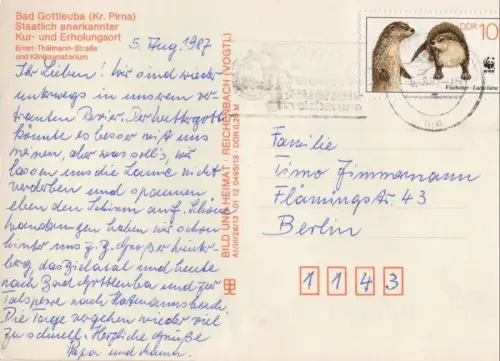 Bad Gottleuba (Kr. Pirna)
Staatlich anerkannter
Kur- und Erholungsort
Ernst-Thälmann-Straße
und Kliniksanatorium
5. Aug. 1987
Ihr Lieben! Wir sind wieder
unterwegs in unserem ver-
trauten Revier. Der Wettergott
könnte es besser mit uns
meinen, aber was soll's, wir
lassen uns die Laune nicht
verderben und spannen
eben den Schirm auf. Schöne
Wanderungen haben wir schon
hinter uns z. B. Großer Winter-
berg, das Bielatal und heute
nach Bad Gottleuba und zur
Talsperre nach
Die Tage vergehen wieder viel
zu schnell. Herzliche Grüße
Papa und Mama.
BILD UND HEIMAT · REICHENBACH (VOGTL)
A1/III/26/13 01 12 0495/13 · DDR 0,20 M
DDR 10
WWF
Fischotter · Lutra lutra
Familie
Timo Zimmermann
Flämingstr. 43
Berlin
1143